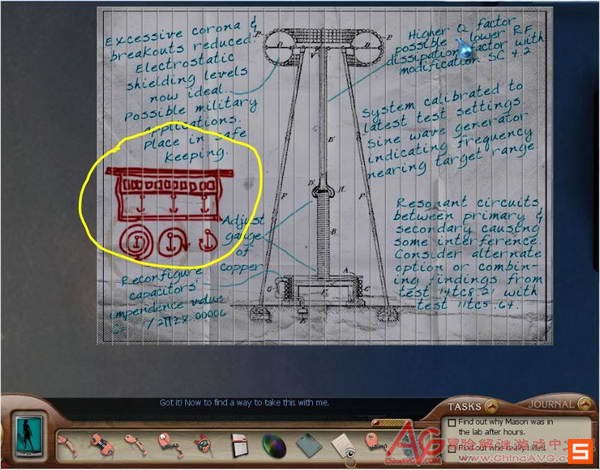 Excessive corona &
breakouts reduced.
Electrostatic
shielding levels
now ideal.
Possible military
applications.
Place in safe
keeping.
Higher Q factor
possible
lower RF
dissipation factor with
modification SC 4.2
System calibrated to
latest test settings
sine wave generator
indicating frequency
nearing target range
Adjust
gauge
of
copper
Reconfigure
capacitors'
impendence value
Resonant circuits
between primary &
secondary causing
some interference.
Consider alternate
option or combin-
ing findings from
with
Got it! Now to find a way to take this with me.
TASKS
JOURNAL
Find out why Mason was in
the lab after hours.
www.ChinaAVG.com